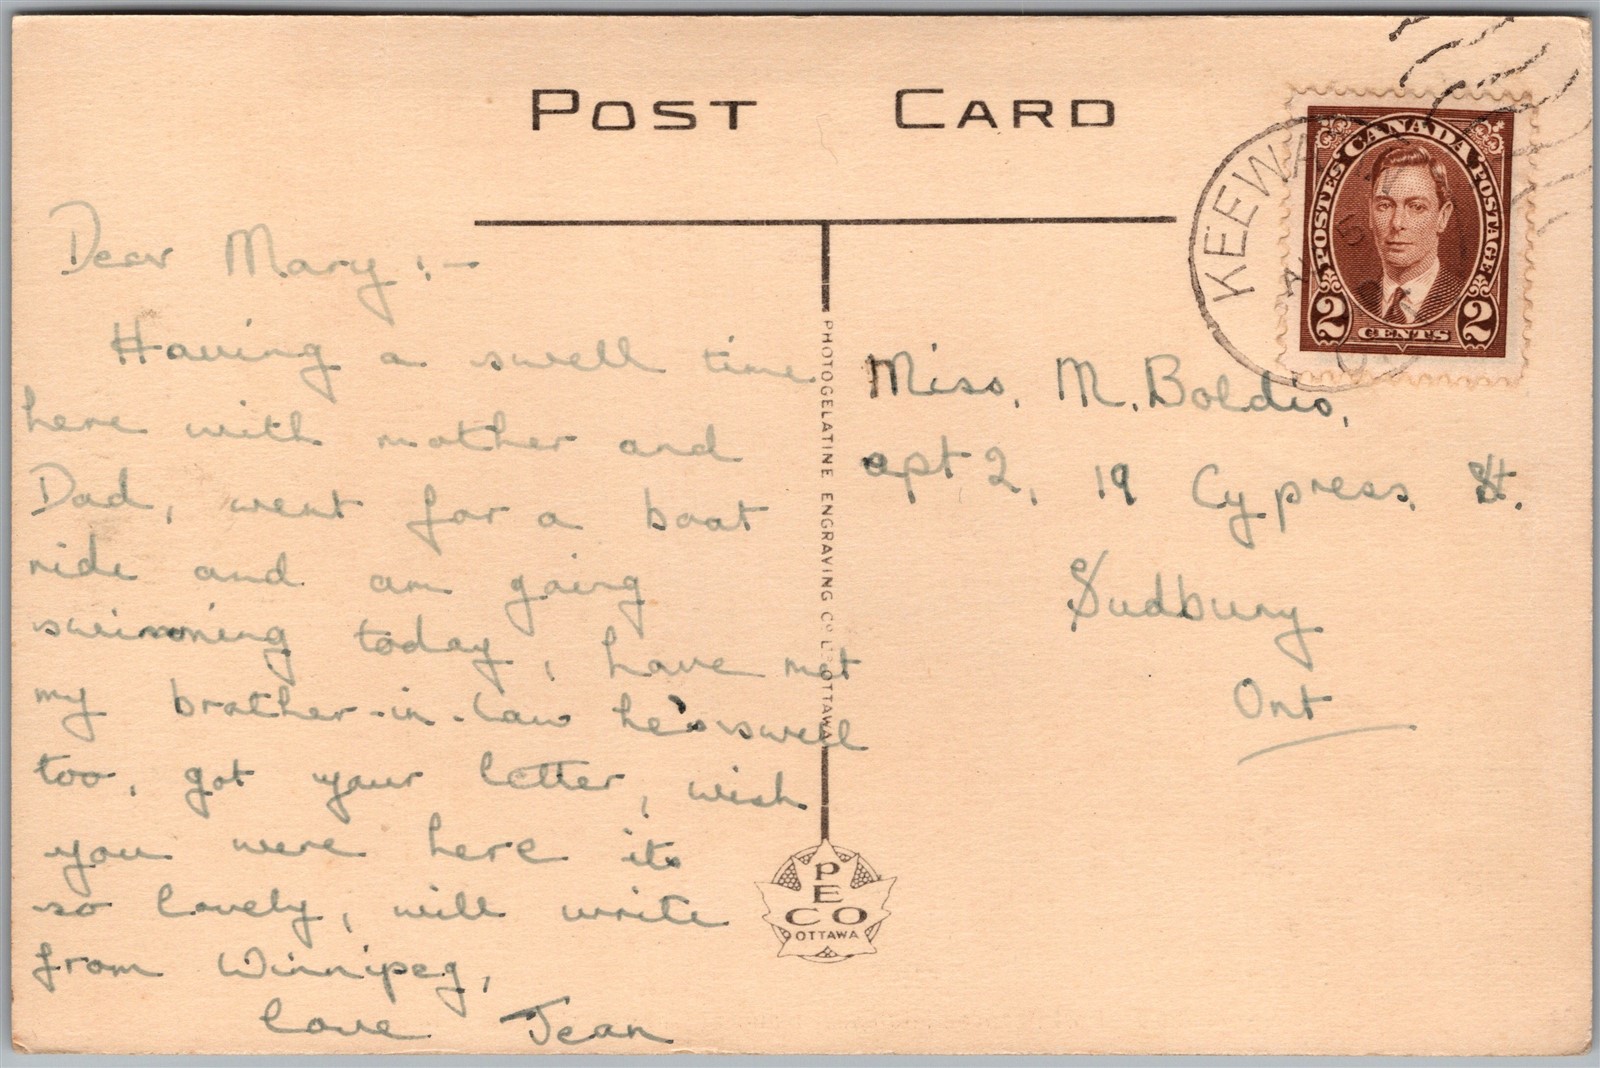 POST CARD
KEEWA
POSTES CANADA POSTAGE
2 CENTS 2
Dear Mary :-
Having a swell time
here with mother and
Dad, went for a boat
ride and am going
swimming today, have met
my brother-in-law he's swell
too, got your letter, wish
you were here its
so lovely, will write
from Winnipeg,
love Jean
PHOTOGELATINE ENGRAVING CO LTD OTTAWA
Miss. M. Boldio,
apt 2, 19 Cypress. St.
Sudbury
Ont
PECO
OTTAWA